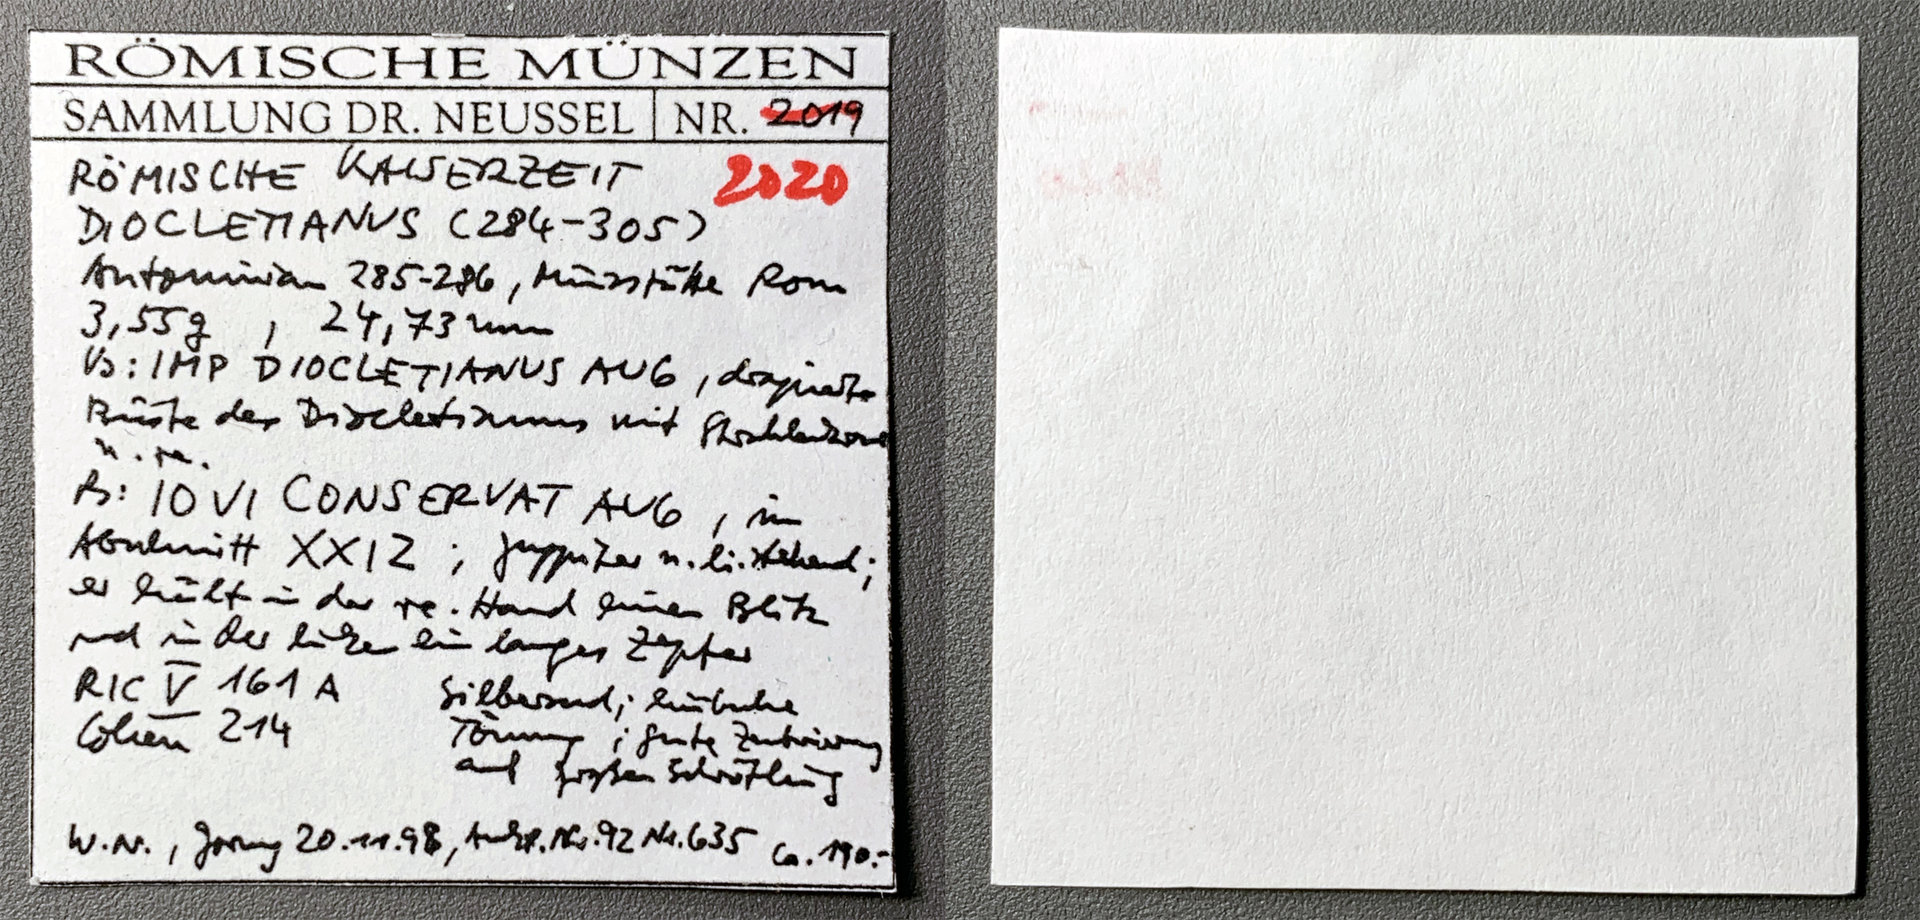 RÖMISCHE MÜNZEN
SAMMLUNG DR. NEUSSEL NR. 2019
RÖMISCHE KAISERZEIT 2020
DIOCLETIANUS (284-305)
Antoninian 285-286, Münzstätte Rom
3,55g , 24,73mm
Vs: IMP DIOCLETIANUS AUG, drapierte
Büste des Diocletianus mit Strahlenkrone
n. re.
Rs: IOVI CONSERVAT AUG, im
Abschnitt XXIZ; Juppiter n. li. stehend;
er hält in der re. Hand einen Blitz
und in der linken ein langes Zepter
RIC V 161 A Silbersud; hübsche
Cohen 214 Tönung; gute Zentrierung
auf großen Schrötling
W.N., 20.11.98, Nr. 92 Nr. 635 ca. 190.-